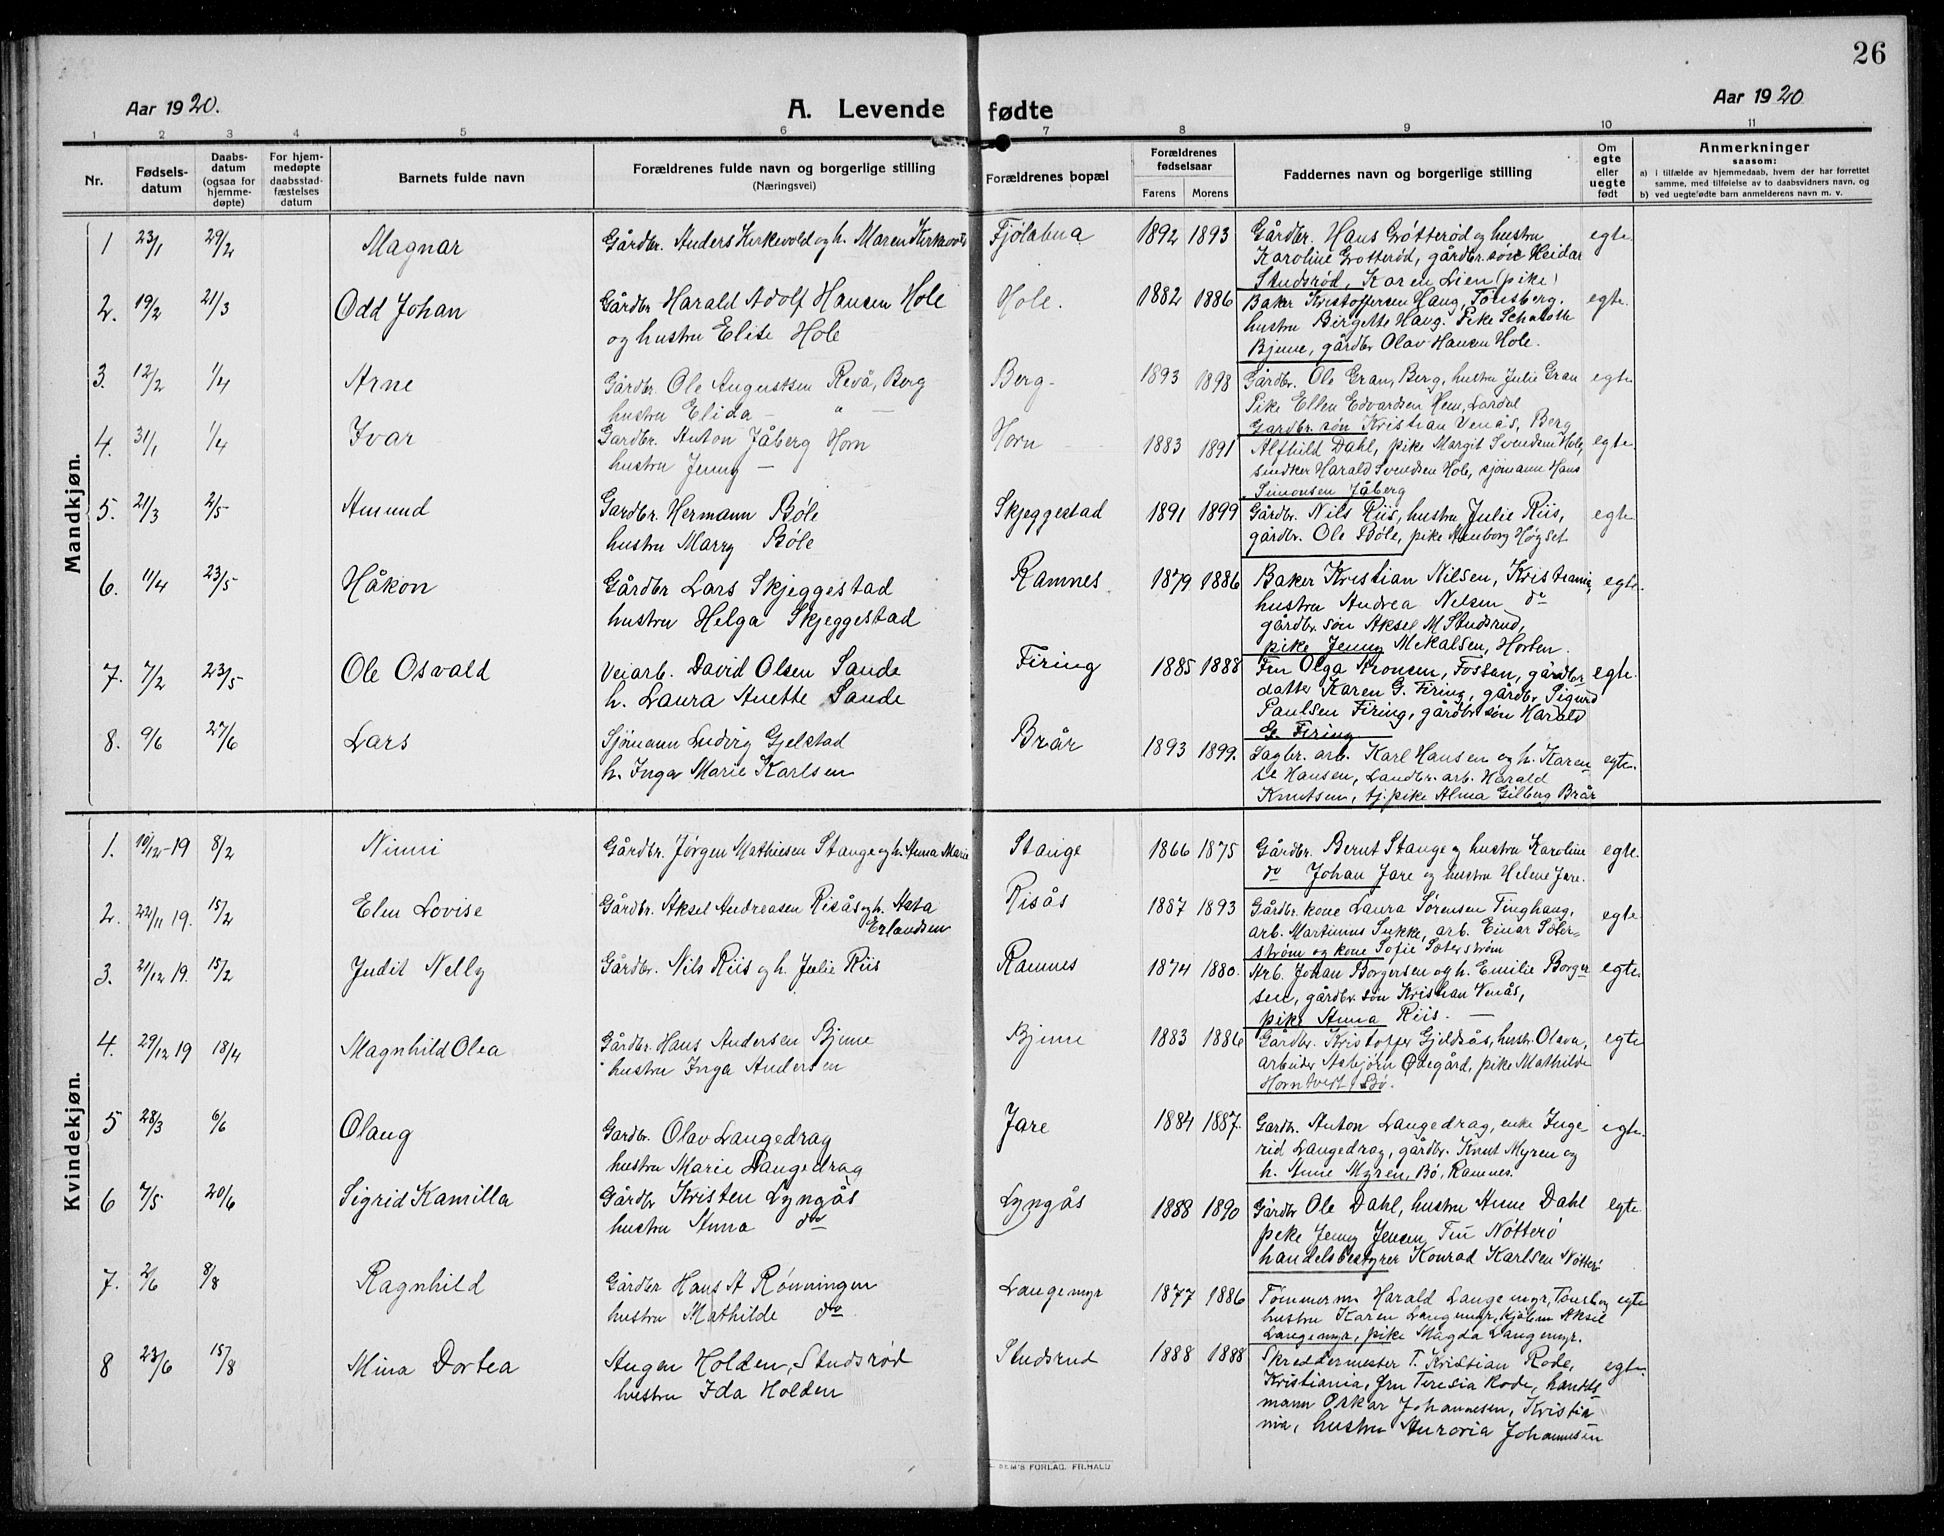 26
Aar 1920.
A. Levende fødte
Aar 1920
1 2 3 4 5 6 7 8 9 10 11
Nr.
Fødsels-
datum
Daabs-
datum
(ogsaa for
hjemme-
døpte)
For hjem-
medøpte
daabsstad-
fæstelses
datum
Barnets fulde navn
Forældrenes fulde navn og borgerlige stilling
(Næringsvei)
Forældrenes bopæl
Forældrenes
fødselsaar
Farens Morens
Faddernes navn og borgerlige stilling
Om
egte
eller
uegte
født
Anmerkninger
saasom:
a) i tilfælde av hjemmedaab, hvem der har forrettet
samme, med tilføielse av to daabsvidners navn, og
b) ved uegtefødte barn anmelderens navn m. v.
Mandkjøn.
1 23/1 29/2 Magnar Gårdbr. Anders Kirkevold og h. Maren Kirkevold Fjølabua 1892 1893 Gårdbr. Hans Grøtterød og hustru egte.
Karoline Grøtterød, gårdbr. søn Reidar
Studsrød, Karen Lien (pike)
2. 19/2 21/3 Odd Johan Gårdbr Harald Adolf Hansen Hole Hole. 1882 1886 Baker Kristoffersen Haug, Tønsberg. egte.
og hustru Elise Hole hustru Birgette Haug. Pike
Bjune, gårdbr Olav Hansen Hole.
3. 12/2 1/4 Arne Gårdbr. Ole Augustsen Revå, Berg Berg- 1893 1898 Gårdbr. Ole Gran, Berg, hustru Julie Gran egte
hustru Elida — " — Pike Ellen Edvardsen Hem, Lardal
Gardbr. søn Kristian Venås, Berg
4. 31/1 1/4 Ivar Gardbr. Anton Jåberg Horn Horn 1883 1891 Alfhild Dahl, pike Margit Svendsen Hole, egte
hustru Jenny — Harald Svendsen Hole, sjømann Hans
Simonsen Jåberg
5. 21/3 2/5 Amund Gardbr. Hermann Bøle Skjeggestad 1891 1899 Gårdbr. Nils Riis, hustru Julie Riis, egte
hustru Marry Bøle gårdbr. Ole Bøle, pike Høgset
6. 11/4 23/5 Håkon Gårdbr Lars Skjeggestad Ramnes 1879 1886 Baker Kristian Nilsen, Kristiania, egte.
hustru Helga Skjeggestad hustru Andrea Nelsen do
gårdbr søn Aksel M Studsrud,
pike Jenny Mekalsen, Horten.
7. 7/2 23/5 Ole Osvald Veiarb. David Olsen Sande Firing 1885 1888 Fru Olga Aronsen, Fossan, gårdbr egte.
h. Laura Anette Sande datter Karen G. Firing, gårdbr. Sigurd
Paulsen Firing, gårdbr søn Harald
G. Firing
8. 9/6 27/6 Lars Sjømann Ludvig Gjelstad Brår 1893 1899. Sagbr. arb. Karl Hansen og h. Karen egte.
h. Inga Marie Karlsen Hansen, Landbr. arb. Harald
Knutsen, tj. pike Alma Gilberg Brår
Kvindekjøn.
1. 10/12-19 8/2 Ninni Gårdbr. Jørgen Mathiesen Stange og h. Anna Marie Stange 1866 1875 Gårdbr. Bernt Stange og hustru Karoline egte.
do Johan Jare og hustru Helene Jare.
2. 22/11 19. 15/2 Elen Lovise Gårdbr. Aksel Andreasen Risås og h. Asta Risås 1887 1893 Gårdbr. kone Laura Sørensen Tinghaug, egte
Erlandsen arb. Martinus Sukke, arb. Einar Søter-
strøm og kone Sofie Søterstrøm
3. 21/12 19. 15/2 Judit Nelly Gårdbr. Nils Riis og h. Julie Riis Ramnes 1874 1880. Arb. Johan Borgersen og h. Emilie Borger egte.
sen, gårdbr. søn Kristian Venås,
pike Anna Riis. —
4. 29/12 19 18/4 Magnhild Olea Gårdbr. Hans Andersen Bjune Bjune 1883 1886 Gårdbr. Kristoffer Gjeldsås, hustr. Olava, egte
hustru Inga Andersen arbeider Asbjørn Ødegård, pike Mathilde
Horntvedt, Bø.
5 28/3 6/6 Olaug Gardbr. Olav Langedrag Jare 1884 1887. Gardbr. Anton Langedrag, enke Inge- egte.
hustru Marie Langedrag rid Langedrag, gårdbr. Knut Myren og
h. Anne Myren, Bø, Ramnes.
6 7/5 20/6 Sigrid Kamilla Gårdbr Kristen Lyngås Lyngås 1888 1890 Gårdbr Ole Dahl, hustru Anne Dahl egte.
hustru Anna do pike Jenny Jensen, Nøtterø
handelsbestyrer Konrad Karlsen Nøtterø
7. 2/6 8/8 Ragnhild Gårdbr Hans A Rønningen Langemyr 1877 1886 Tømmerm Harald Langemyr, Tønsberg egte
hustru Mathilde do hustru Karen Langemyr, Aksel
Langemyr, pike Magda Langemyr.
8 23/6 15/8 Mina Dortea Augen Holden, Studsrød Studsrud 1888 1888 Skreddermester T. Kristian Rode, egte.
hustru Ida Holden Kristiania, fru Teresia Rode, handels
mann Oskar Johannesen, Kristia
nia, hustru Aurora Johannesen
SEM'S FORLAG. FR.HALD